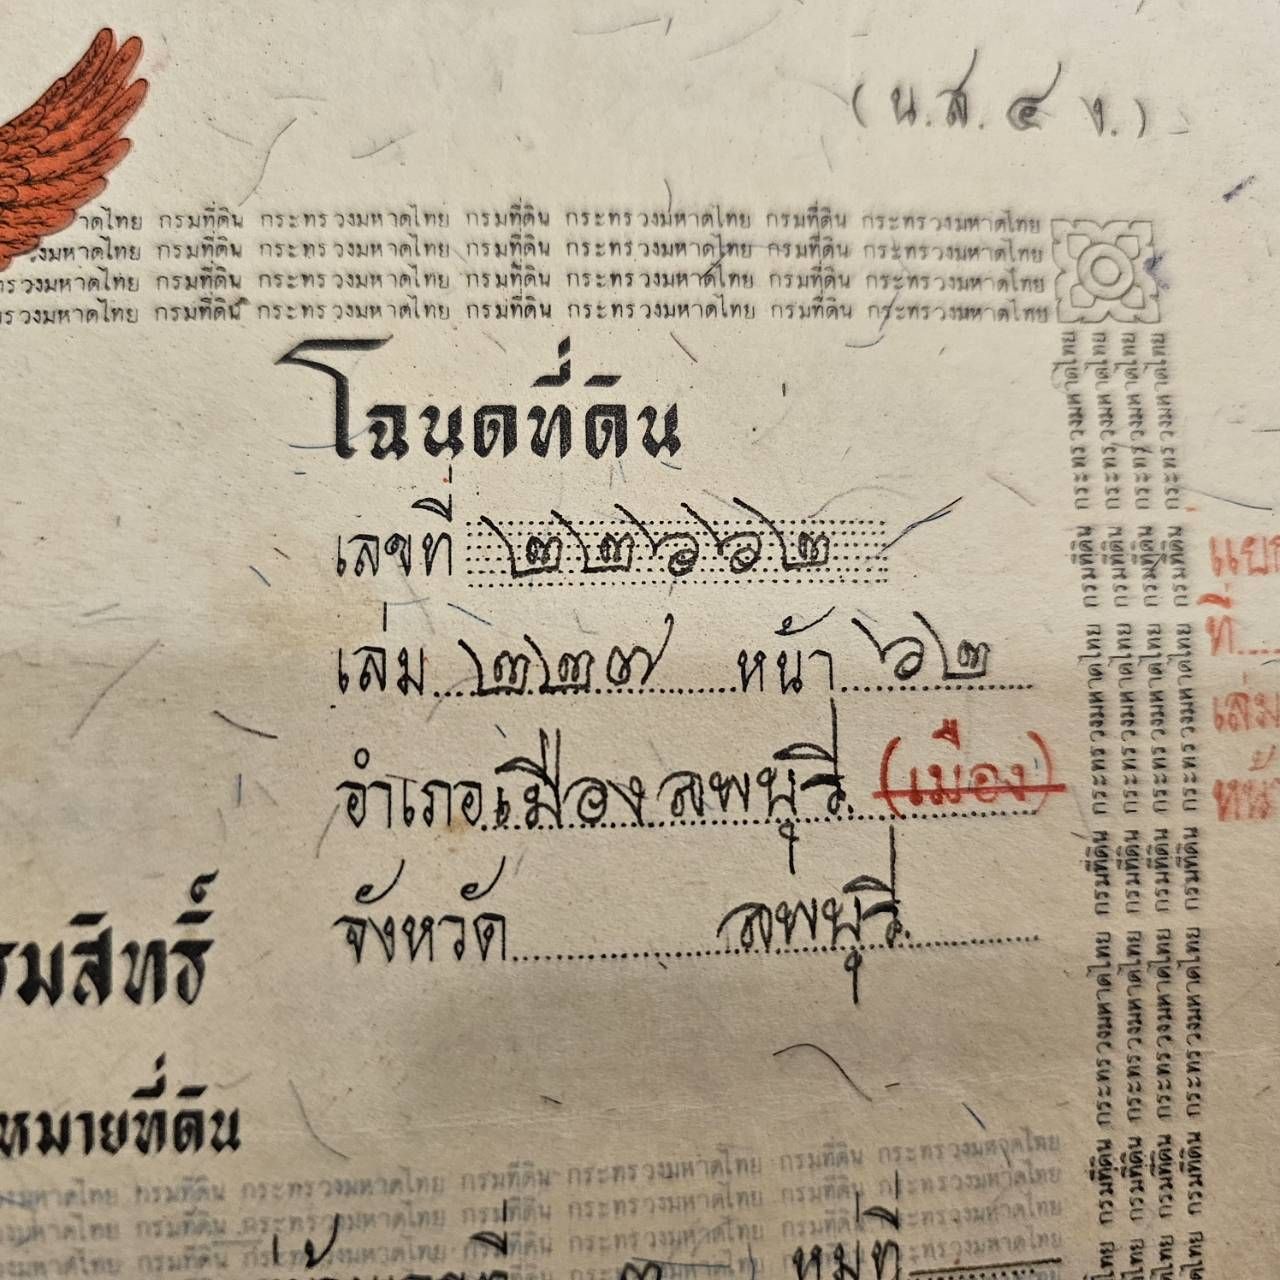 (น.ส. ๔ ง.)
าดไทย กรมที่ดิน กระทรวงมหาดไทย กรมที่ดิน กระทรวงมหาดไทย กรมที่ดิน กระทรวงมหาดไทย
วงมหาดไทย กรมที่ดิน กระทรวงมหาดไทย กรมที่ดิน กระทรวงมหาดไทย กรมที่ดิน กระทรวงมหาดไทย
ทรวงมหาดไทย กรมที่ดิน กระทรวงมหาดไทย กรมที่ดิน กระทรวงมหาดไทย กรมที่ดิน กระทรวงมหาดไทย
รวงมหาดไทย กรมที่ดิน กระทรวงมหาดไทย กรมที่ดิน กระทรวงมหาดไทย กรมที่ดิน กระทรวงมหาดไทย
โฉนดที่ดิน
เลขที่ ๒๒๖๖๒
เล่ม ๒๒๗ หน้า ๖๒
อำเภอ เมืองลพบุรี (เมือง)
จังหวัด ลพบุรี
รมสิทธิ์
หมายที่ดิน
วงมหาดไทย กรมที่ดิน กระทรวงมหาดไทย กรมที่ดิน กระทรวงมหาดไทย
หมู่ที่
ที่
เล่ม